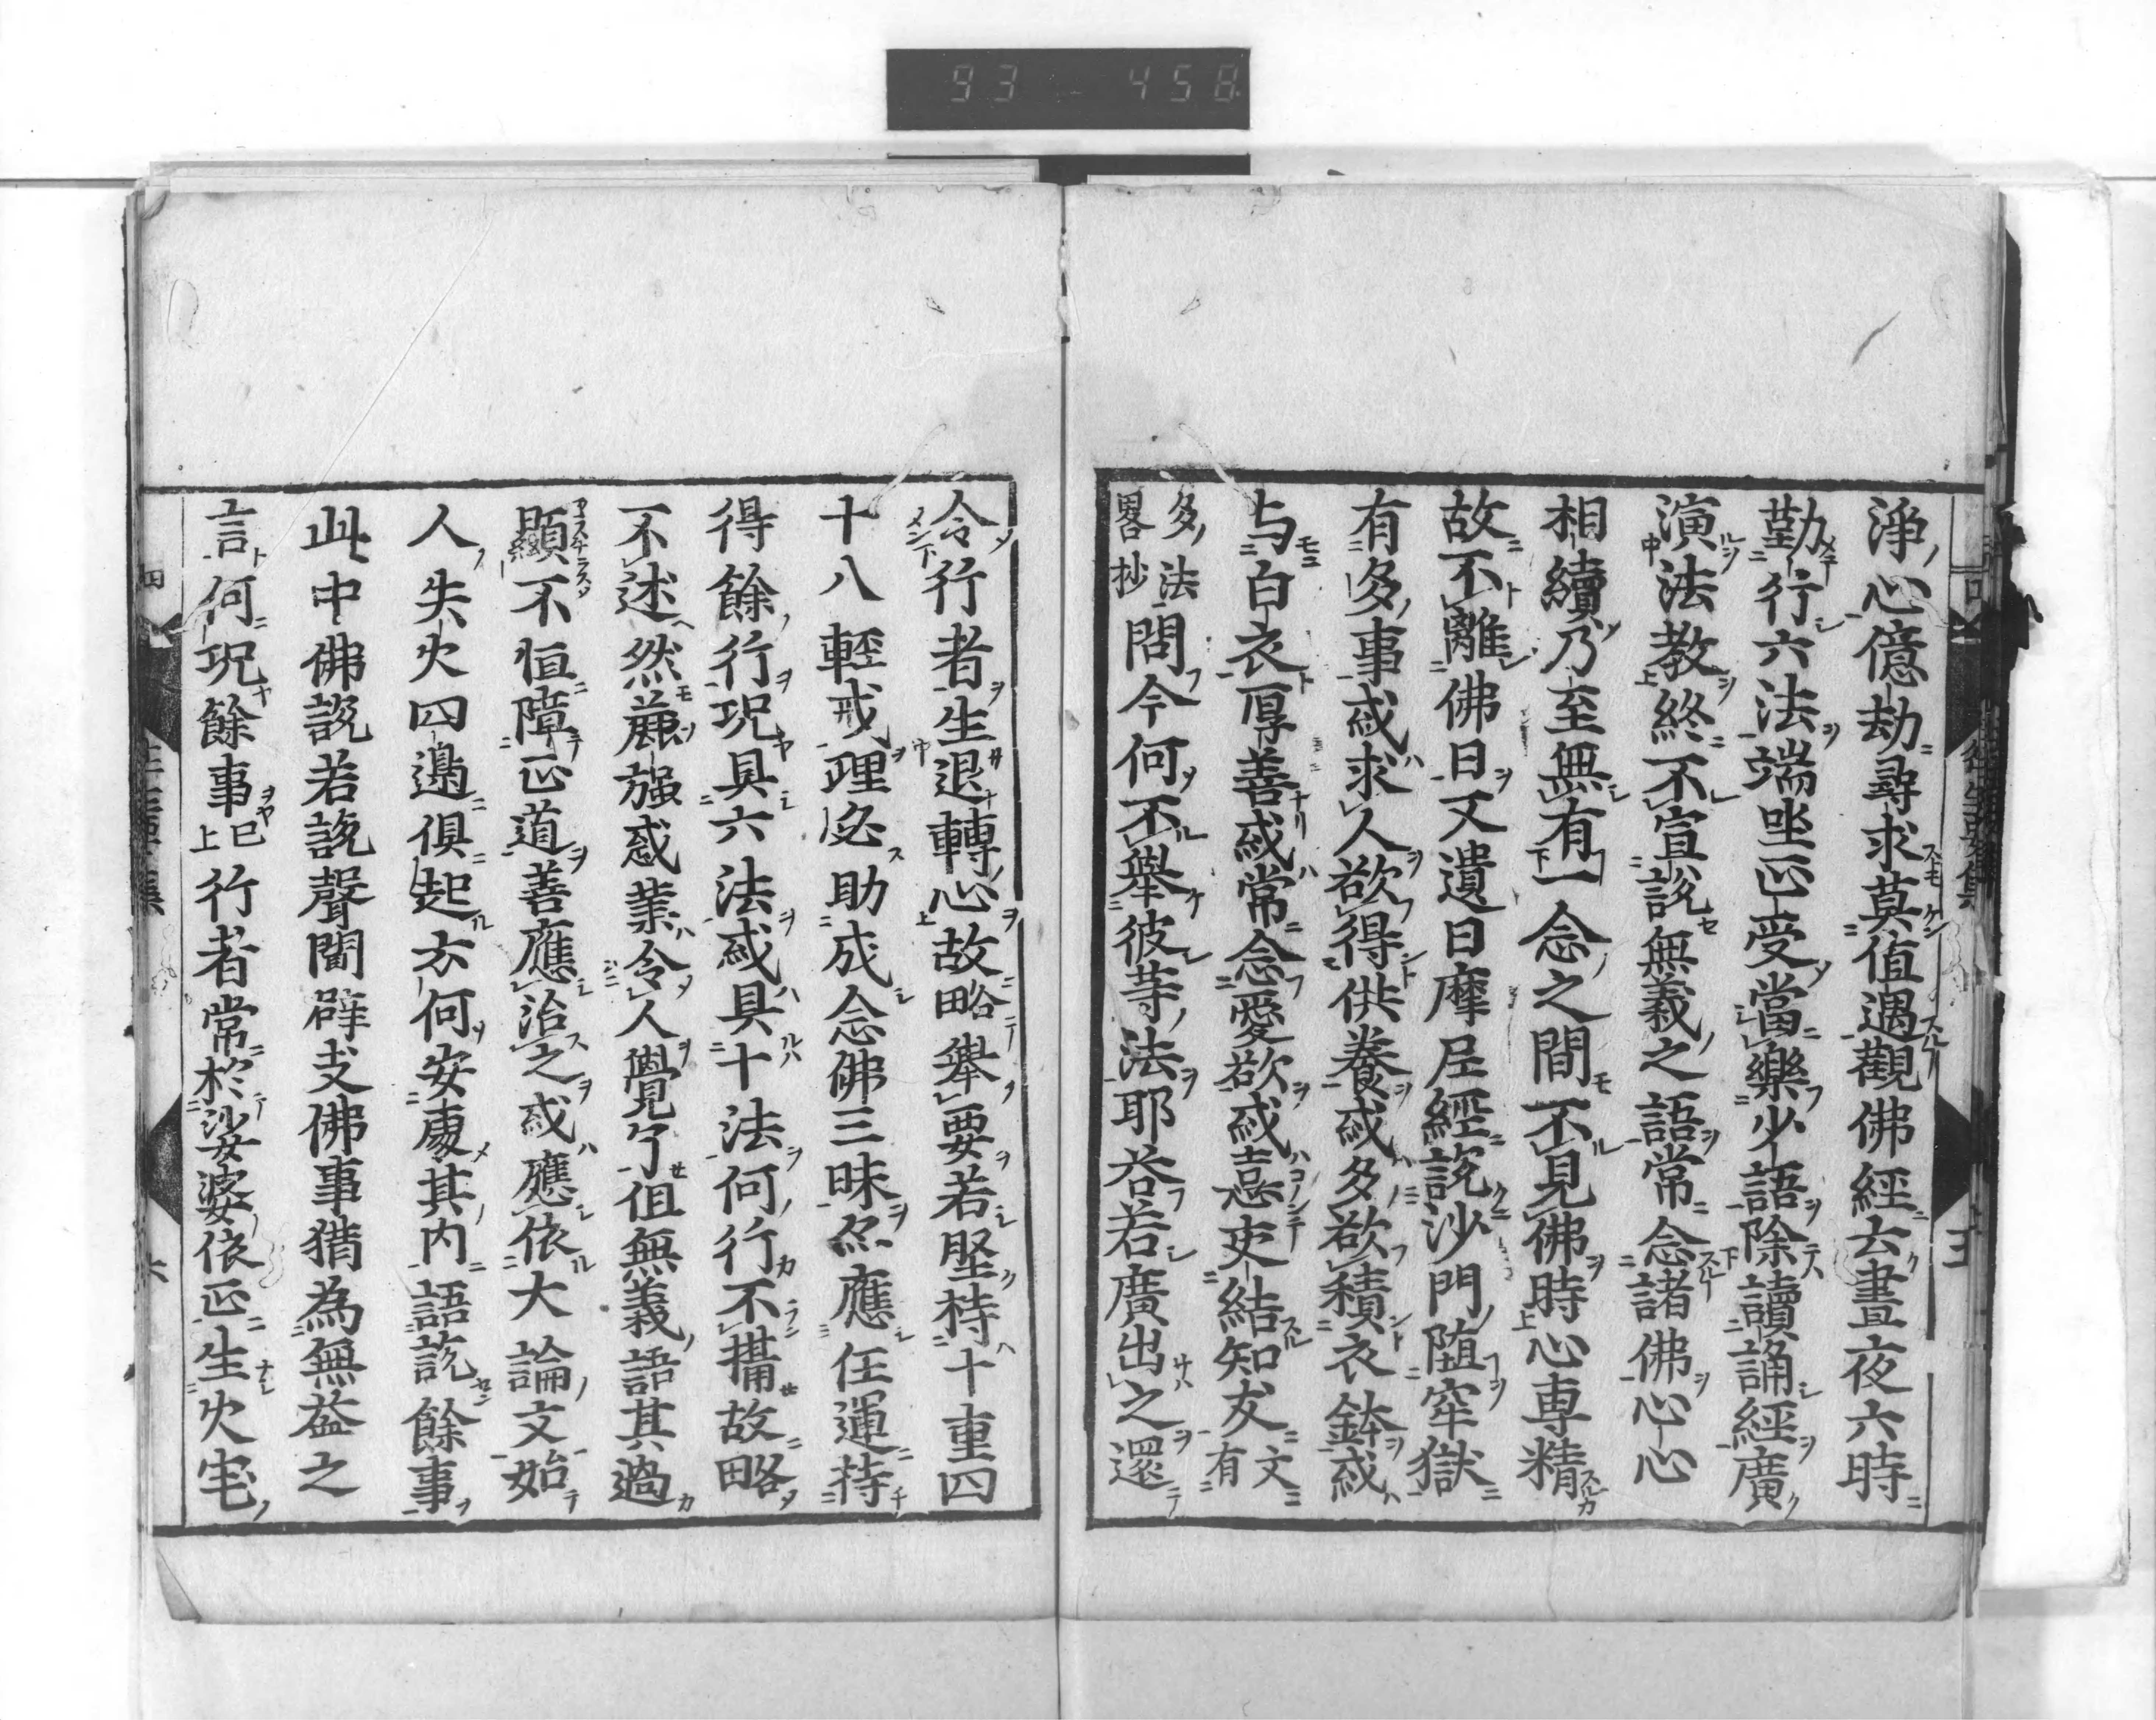 93 - 458
淨心億劫尋求莫値遇觀佛經云晝夜六時
勤行六法端坐正受當樂少語除讀誦經廣
演法教終不宣說無義之語常念諸佛心心
相續乃至無有一念之間不見佛時心専精
故不離佛日又遺日摩尼經說沙門堕牢獄
有多事或求人欲得供養或多欲積衣鉢或
与白衣厚善或常念愛欲或憙吏結知友文有
多法畧抄問今何不舉彼等法耶荅若廣出之還
令行者生退轉心故略舉要若堅持十重四
十八輕戒理必助成念佛三昧亦應任運持
得餘行況具六法或具十法何行不攝故略
不述然麁強惑業令人覺了但無義語其過
不顯恒障正道善應治之或應依大論文始
人失火四邊俱起云何安處其内語說餘事
此中佛說若說聲聞辟支佛事猶為無益之
言何況餘事已上行者常於娑婆依正生火宅